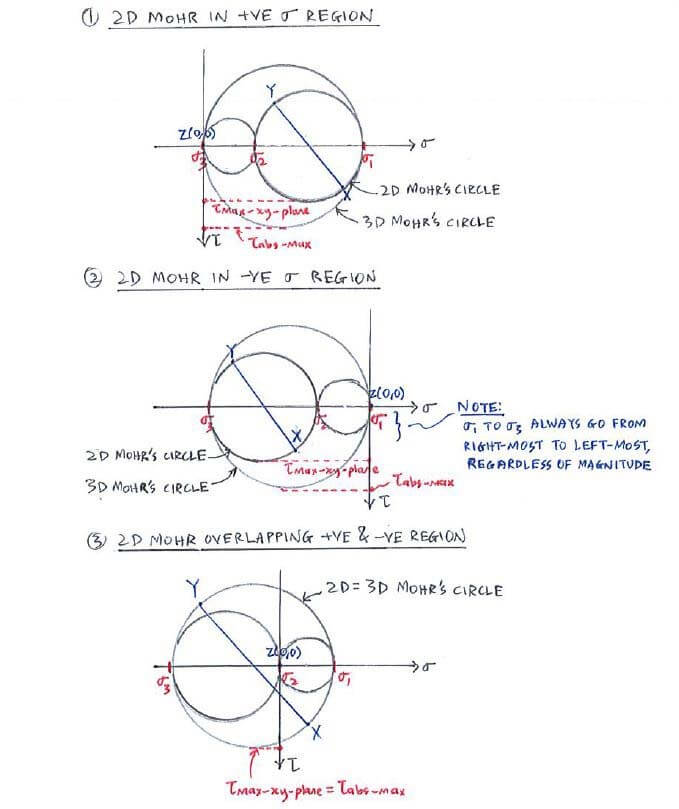 ① 2D MOHR IN +VE σ REGION
Y
Z(0,0)
σ
σ3
σ2
σ1
X
2D MOHR'S CIRCLE
τMax-xy-plane
3D MOHR'S CIRCLE
τ
τabs-max
② 2D MOHR IN -VE σ REGION
Y
Z(0,0)
σ
NOTE:
σ3
σ2
σ1
σ1 TO σ3 ALWAYS GO FROM
RIGHT-MOST TO LEFT-MOST,
REGARDLESS OF MAGNITUDE
X
2D MOHR'S CIRCLE
τMax-xy-plane
3D MOHR'S CIRCLE
τabs-max
τ
③ 2D MOHR OVERLAPPING +VE & -VE REGION
Y
2D = 3D MOHR'S CIRCLE
Z(0,0)
σ
σ3
σ2
σ1
X
τ
τMax-xy-plane = τabs-max